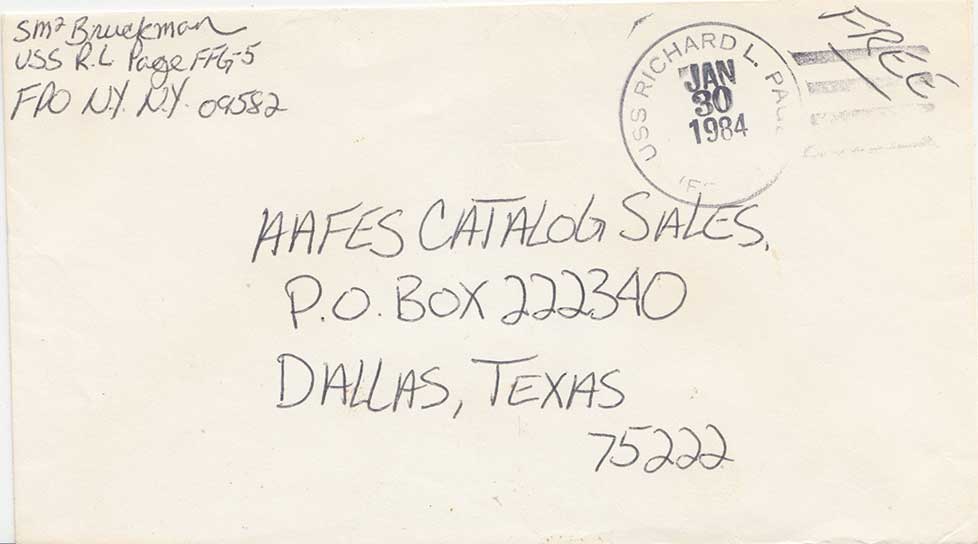 SM2 Bruckman
USS R.L. Page FFG-5
FPO N.Y. N.Y. 09582
USS RICHARD L. PAGE
JAN
30
1984
FREE
AAFES CATALOG SALES.
P.O. BOX 222340
DALLAS, TEXAS
75222